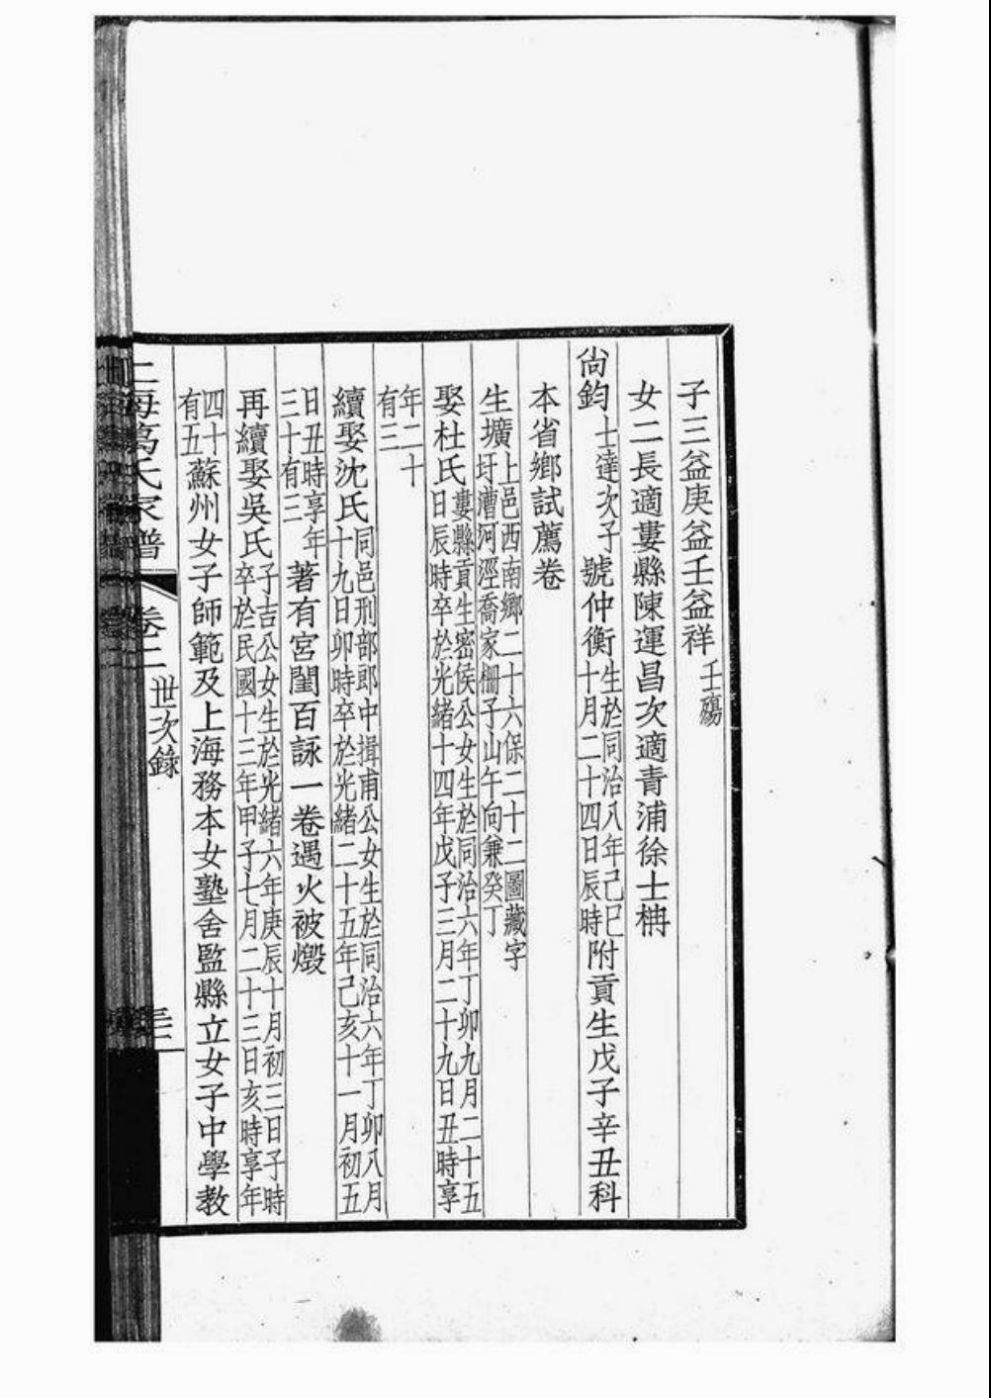 子三益庚益壬益祥壬殤
女二長適婁縣陳運昌次適青浦徐士椣
尙鈞士達次子號仲衡生於同治八年己巳十月二十四日辰時附貢生戊子辛丑科
本省鄉試薦卷
生壙上邑西南鄉二十六保二十二圖藏字圩漕河涇喬家柵子山午向兼癸丁
娶杜氏婁縣貢生密侯公女生於同治六年丁卯九月二十五日辰時卒於光緒十四年戊子三月二十九日丑時享
年二十有三
續娶沈氏同邑刑部郎中揖甫公女生於同治六年丁卯八月十九日卯時卒於光緒二十五年己亥十一月初五
日丑時享年三十有三著有宮閨百詠一卷遇火被燬
再續娶吳氏子吉公女生於光緒六年庚辰十月初三日子時卒於民國十三年甲子七月二十三日亥時享年
四十有五蘇州女子師範及上海務本女塾舍監縣立女子中學教
上海葛氏家譜 卷二 世次錄